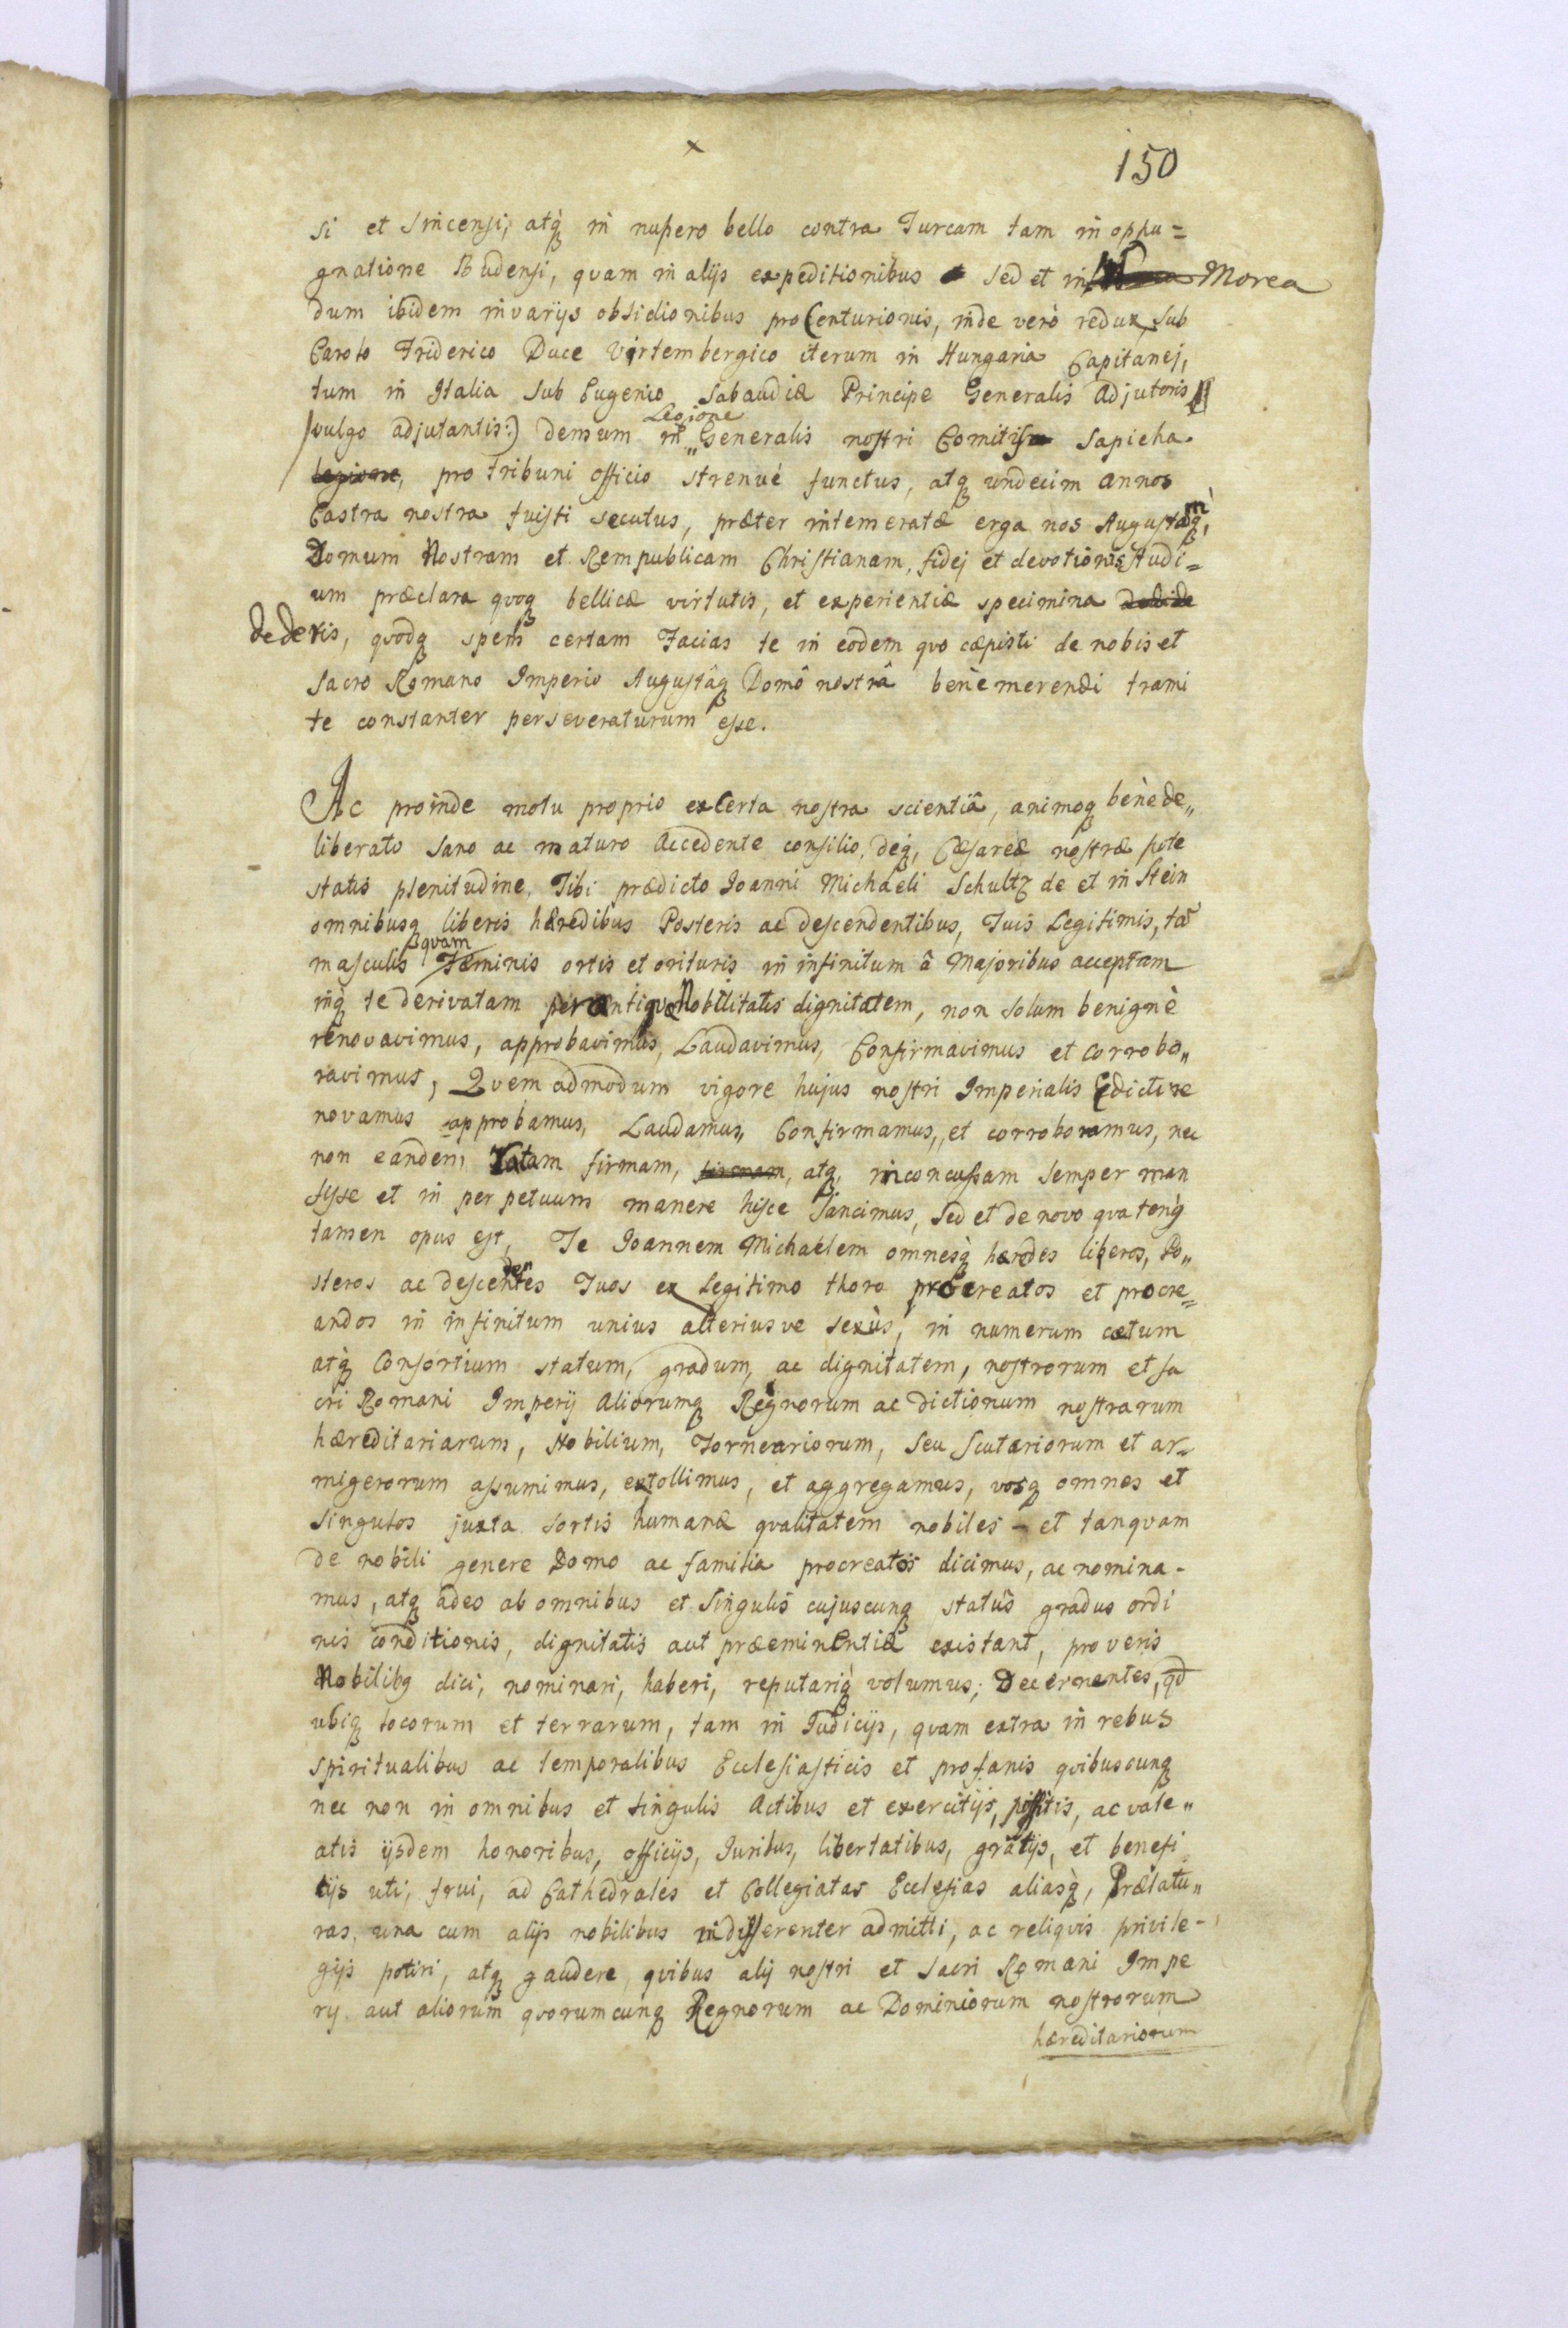 150
si et Sincensi, atq̀ in nupero bello contra Turcam tam in oppu=
gnatione Budensi, quam in alijs expeditionibus sed et in Morea
dum ibidem in varijs obsidionibus pro Centurionis, inde verò redux sub
Carolo Friderico Duce Virtembergico iterum in Hungaria Capitanej,
tum in Italia sub Eugenio Sabaudiæ Principe Generalis Adjutoris
Legione
(vulgo adjutantis:) demum in „ Generalis nostri Comitis Sapieha
legione, pro tribuni officio strenué functus, atq undecim annos
Castra nostra fuisti secutus, præter intemeratæ erga nos Augustamq̀,
Domum Nostram et Rempublicam Christianam, fidej et devotionis studi=
um præclara quoq bellicæ virtutis, et experientiæ specimina
dederis, quodq spem certam Facias te in eodem quo cæpisti de nobis et
Sacro Romano Imperio Augustâq Domô nostrâ benèmerendi trami
te constanter perseveraturum esse.
Ac proinde motu proprio ex Certa nostra scientiâ, animoq bènede„
liberato sano ac maturo Accedente consilio, deq̀, Cæsareæ nostræ pote
statis plenitudine, Tibi prædicto Joanni Michaeli Schultz de et in Stein
omnibusq liberis hæredibus Posteris ac descendentibus, Tuis Legitimis, tā
quam
masculis Fæminis ortis et orituris in infinitum â Majoribus acceptam
inq̀ te derivatam perantiquæ Nobilitatis dignitatem, non solum benignè
renovavimus, approbavimus, Laudavimus, Confirmavimus et corrobo„
ravimus, Quemadmodum vigore hujus nostri Imperialis Edicti re
novamus approbamus, Laudamus, Confirmamus, et corroboramus, nec
non eandem Ratam firmam, firmam, atq, inconcussam semper man
sisse et in perpetuum manere hisce Sancimus, Sed et de novo quatenq̀
tamen opus est, Te Joannem Michaèlem omnesq̀ hærdes liberos, Po„
den
steros ac descentes Tuos ex Legitimo thoro procreatos et procre=
andos in infinitum unius alteriusve sexùs, in numerum cætum
atq̀ Consortium statum, gradum, ac dignitatem, nostrorum et sa
cri Romani Imperij Aliorumq Regnorum ac dictionum nostrarum
hæreditariarum, Nobilium, Torneariorum, Seu Scutariorum et ar-
migerorum assumimus, extollimus, et aggregamus, vosq omnes et
Singulos juxta sortis humanæ qvalitatem nobiles - et tanqvam
de nobili genere Domo ac familia procreatos dicimus, ac nomina-
mus, atq adeo ab omnibus et Singulis cujuscunq statûs gradus ordi
nis conditionis, dignitatis aut præeminentiæ existant, pro veris
Nobilibq dici, nominari, haberi, reputariq̀ volumus; Decernentes, qd
ubiq locorum et terrarum, tam in Judicijs, quam extra in rebus
spiritualibus ac temporalibus Ecclesiasticis et profanis qvibuscunq
nec non in omnibus et singulis Actibus et exercitijs, possitis, ac vale„
atis ijsdem honoribus, officijs, Juribus, libertatibus, gratijs, et benefi
cijs uti, frui, ad Cathedrales et Collegiatas Ecclesias aliasq̀, Prælatu„
ras, una cum alijs nobilibus indifferenter admitti, ac reliqvis privile-
gijs potiri, atq gaudere, qvibus alij nostri et Sacri Romani Impe
rij aut aliorum qvorumcunq Regnorum ac Dominiorum nostrorum
hæreditariorum